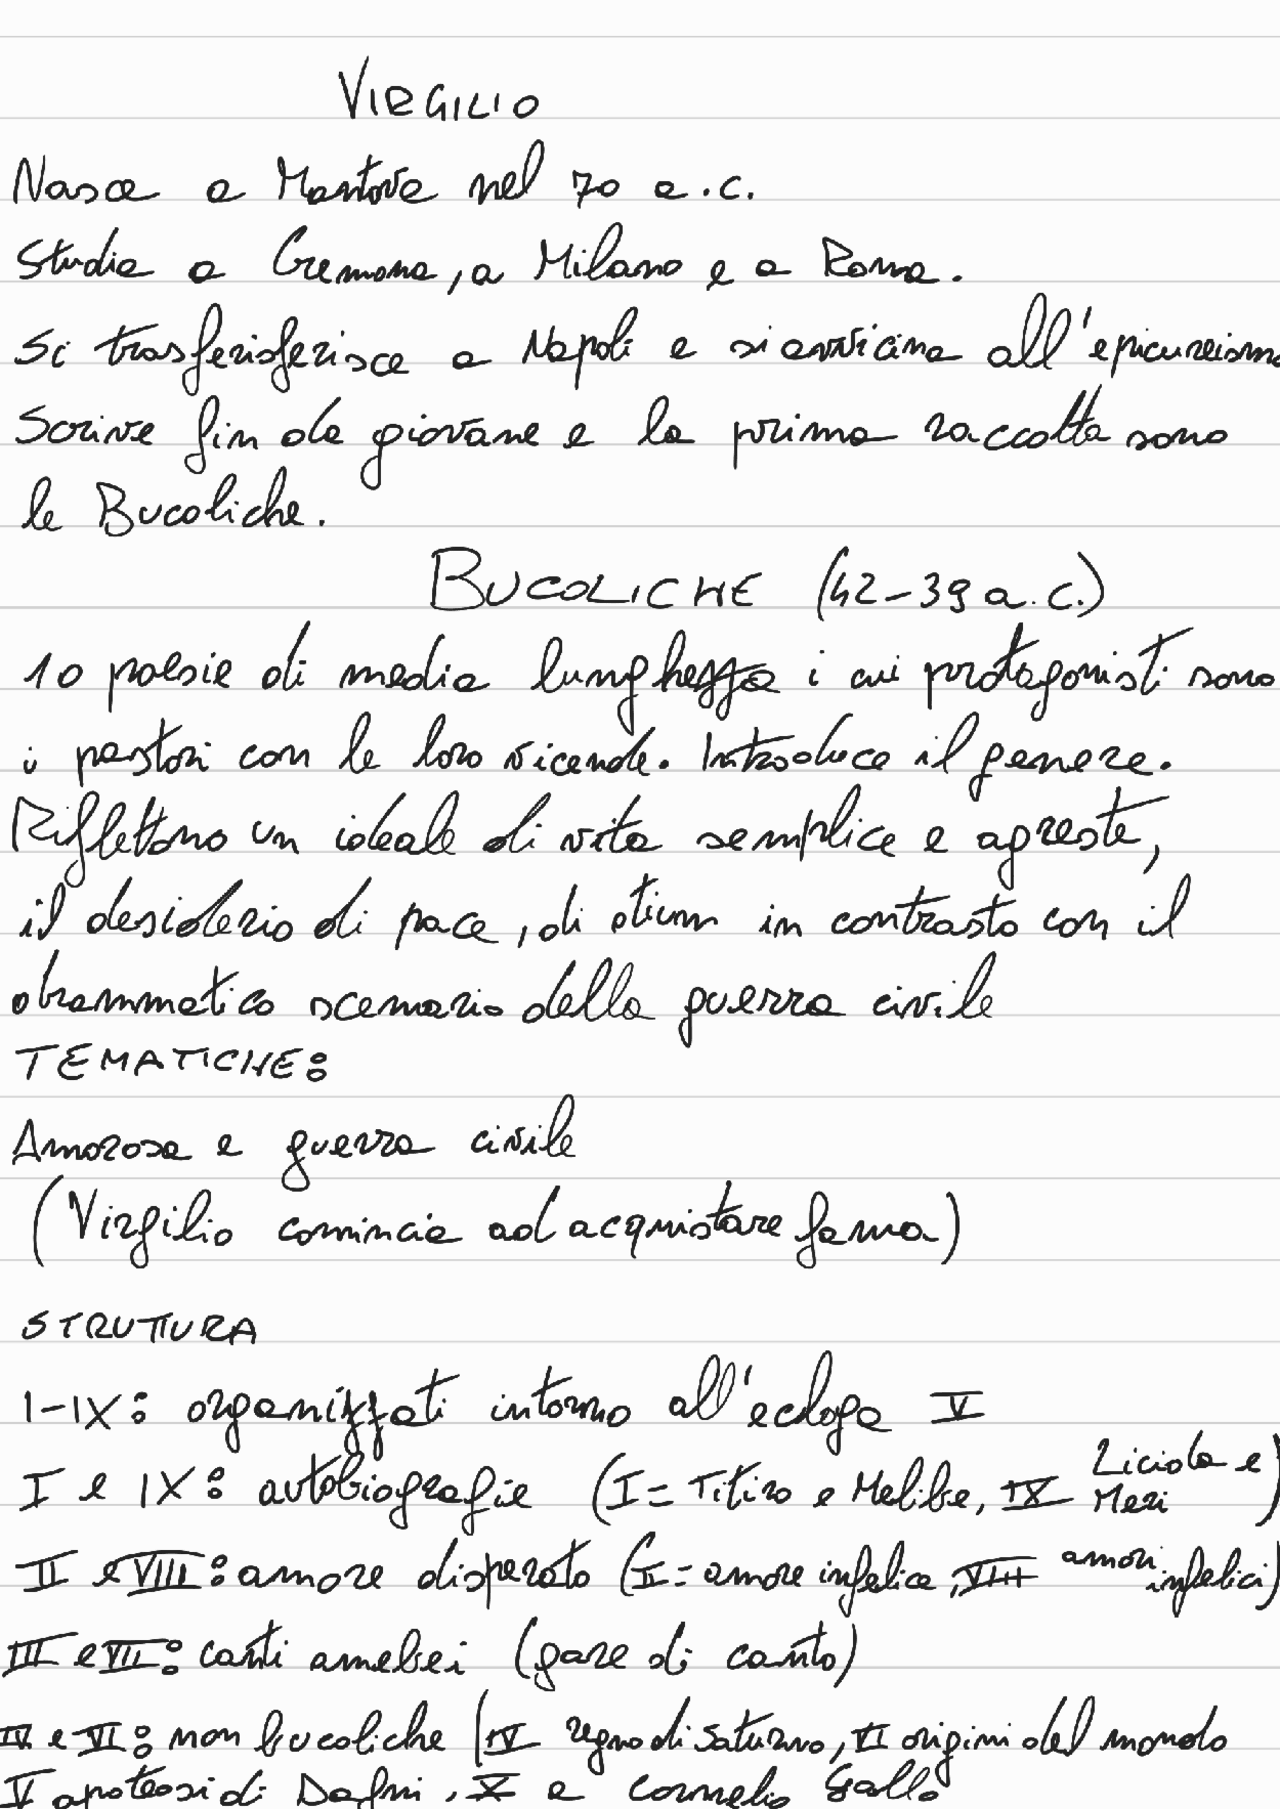 VIRGILIO
Nasce a Mantova nel 70 a.c.
Studia a Cremona, a Milano e a Roma.
Si trasferisferisce a Napoli e si avvicina all'epicureismo
Scrive fin da giovane e la prima raccolta sono
le Bucoliche.
BUCOLICHE (42-39 a.c.)
10 poesie di media lunghezza i cui protagonisti sono
i pastori con le loro vicende. Introduce il genere.
Riflettono un ideale di vita semplice e agreste,
il desiderio di pace, di otium in contrasto con il
drammatico scenario della guerra civile
TEMATICHE:
Amorosa e guerra civile
(Virgilio comincia ad acquistare fama)
STRUTTURA
I-IX: organizzati intorno all'ecloga V
I e IX: autobiografie (I= Titiro e Melibe, IX Licida e Meri)
II e VIII: amore disperato (II= amore infelice, VIII amori infelici)
III e VII: canti amebei (gare di canto)
IV e VI: non bucoliche (IV regno di saturno, VI origini del mondo
V apoteosi di Dafni, X a cornelio Gallo